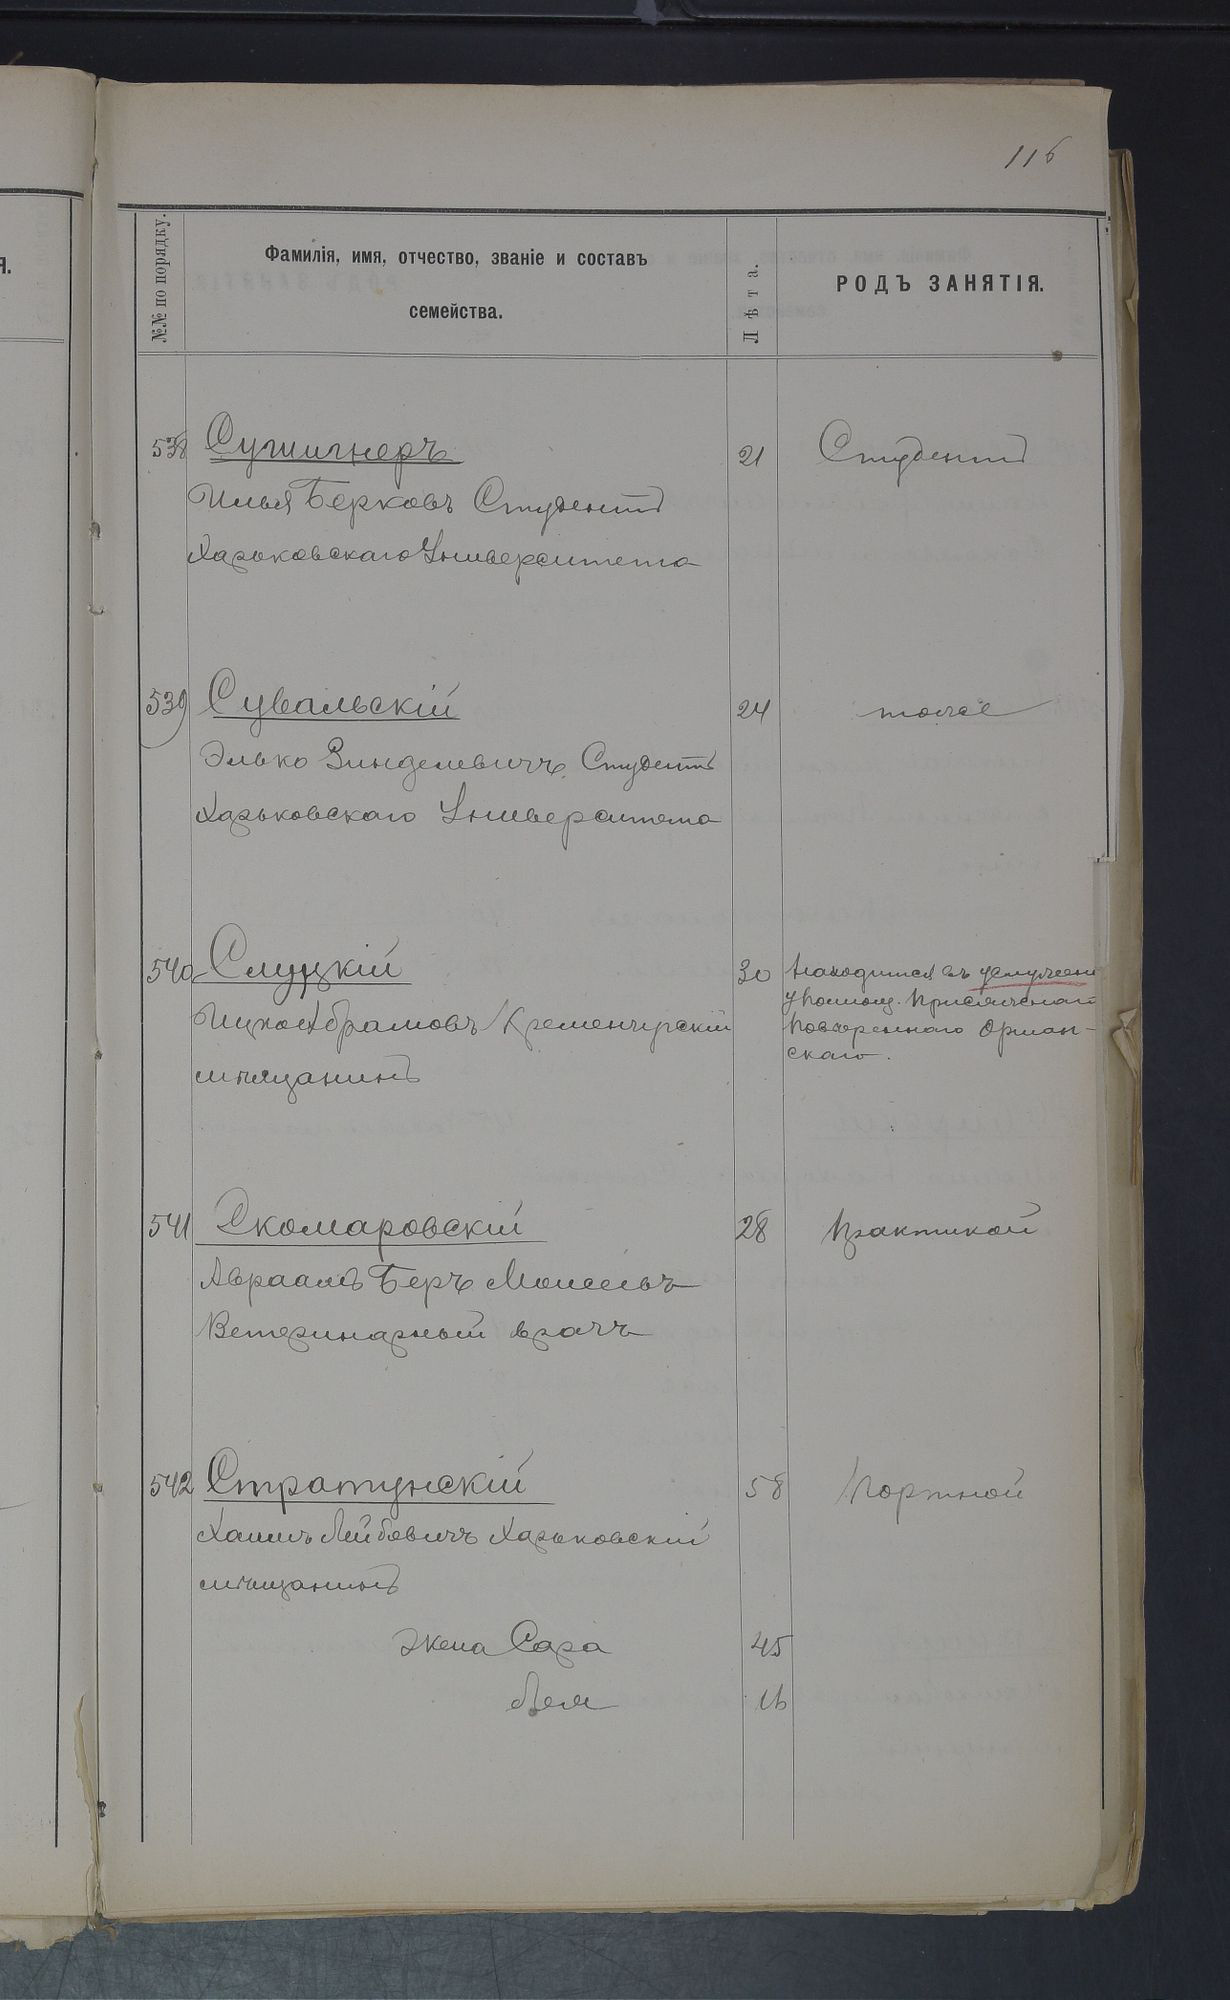 116
№№ по порядку.
Фамилія, имя, отчество, званіе и составъ
семейства.
Лѣта.
РОДЪ ЗАНЯТІЯ.
538
21
Студентъ
Илья Берковъ Студентъ
Харьковскаго Университета
539 Сувальскій
24
тоже
Элько Зинделевичъ Студентъ
Харьковскаго Университета
540 Слуцкій
30
Находится въ услужени
у помощ. Присяжнаго
Повѣреннаго Оршан-
скаго.
Ицко Абрамовъ Кременчугскій
мѣщанинъ
541 Скомаровскій
28
практикой
Авраамъ Беръ
Ветеринарный врачъ
542 Стратунскій
58
Портной
Хаимъ Лейбовичъ Харьковскій
мѣщанинъ
жена Сара
45
16